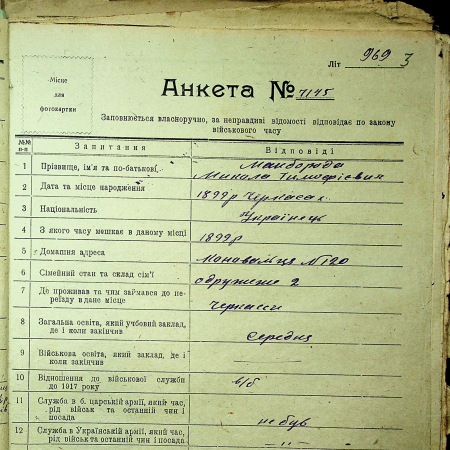 Літ 969 3
Місце
для
фотокартки
Анкета № 7145
Заповнюється власноручно, за неправдиві відомості відповідає по закону
військового часу
№№
п-п
Запитання
Відповіді
1 Прізвище, ім'я та по-батькові,
Майборода
Микола Тимофієвич
2 Дата та місце народження
1899р Черкаса
3 Національність
Українець
4 З якого часу мешкає в даному місці
1899р
5 Домашня адреса
№120
6 Сімейний стан та склад сім'ї
одружение 2
7 Де проживав та чим займався до пе-
реїзду в дане місце
Черкасси
8 Загальна освіта, який учбовий заклад,
де і коли закінчив
середня
9 Військова освіта, який заклад, де і
коли закінчив
10 Відношення до військової служби
до 1917 року
в/б
11 Служба в б. царській армії, який час,
рід військ та останній чин і
посада
не був
12 Служба в Українській армії, який час,
рід військ та останній чин і посада
-"-